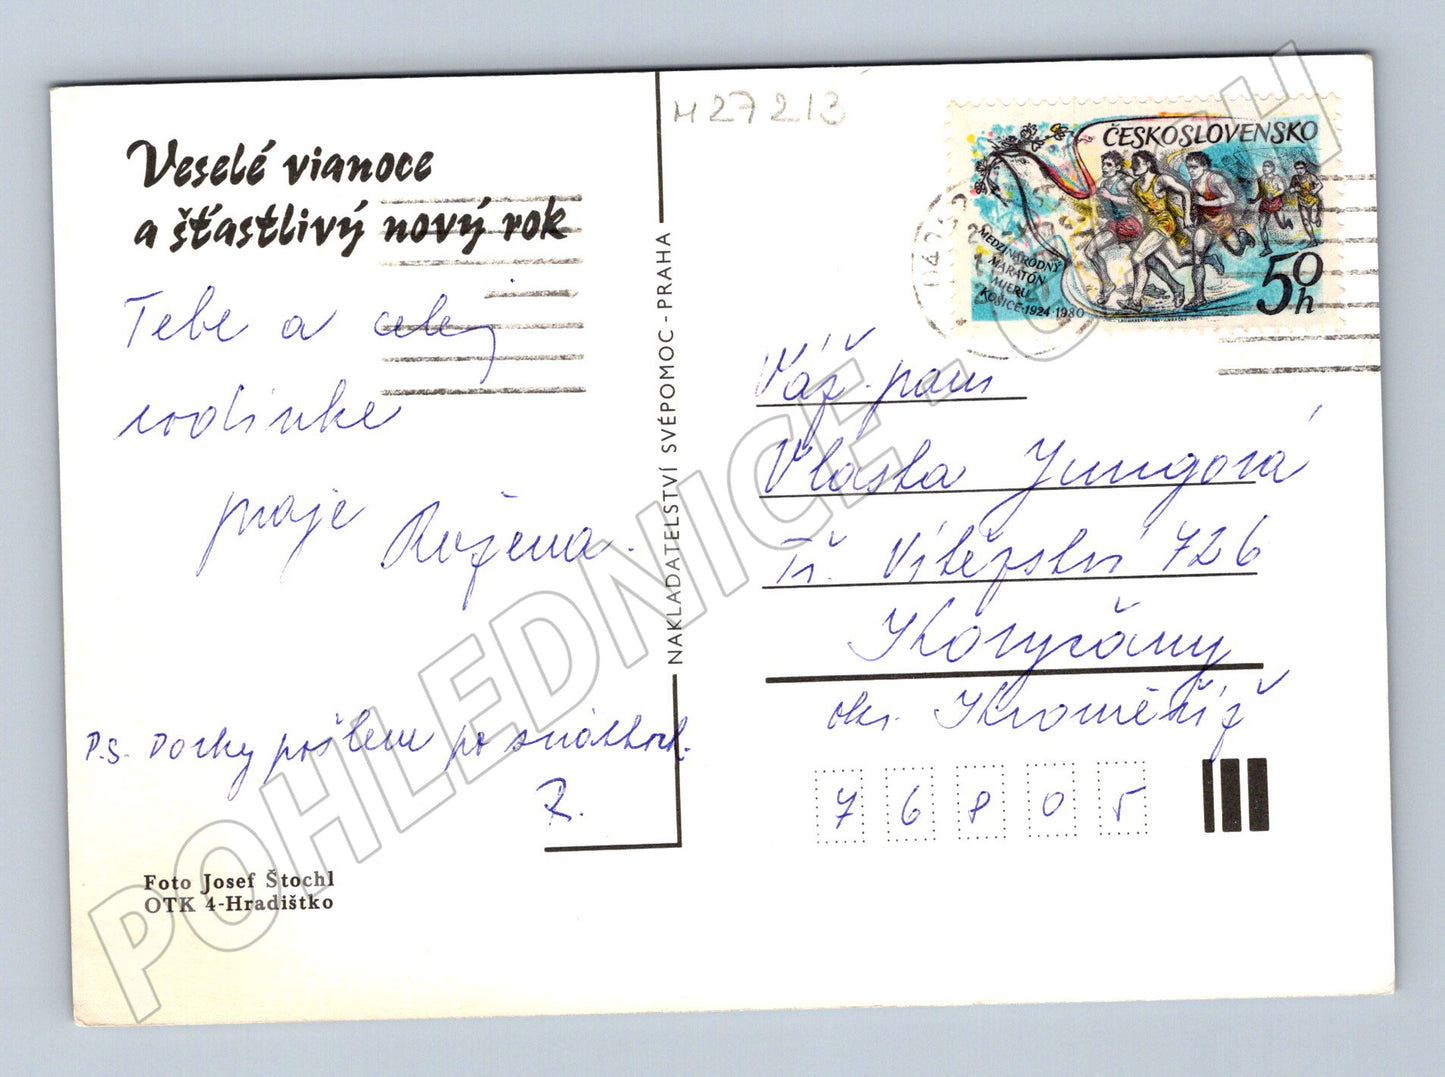 Veselé vianoce
a šťastlivý nový rok
Tebe a celej
rodinke
praje Ružena.
P.S. Dorky pošlem po sviatkoch.
R.
Foto Josef Štochl
OTK 4-Hradištko
NAKLADATELSTVÍ SVÉPOMOC - PRAHA
M 27213
ČESKOSLOVENSKO
MEDZINÁRODNÝ
MARATÓN
MIERU
KOŠICE·1924·1980
50h
Váž. pani
Vlasta Jungová
Tř. Vítězství 726
Koryčany
okr. Kroměříž
76805
POHLEDNICE - CZ.EU